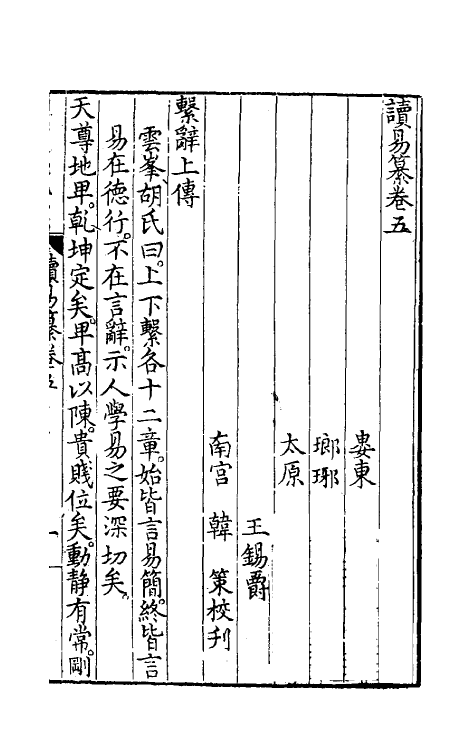 讀易纂卷五
婁東
瑯琊
太原
王錫爵
南宫　韓　策校刋
繫辭上傳
雲峯胡氏曰。上下繫各十二章。始皆言易簡。終皆言
易在德行。不在言辭。示人學易之要深切矣。
天尊地卑。乾坤定矣。卑高以陳。貴賤位矣。動静有常。剛
讀易纂卷五
一